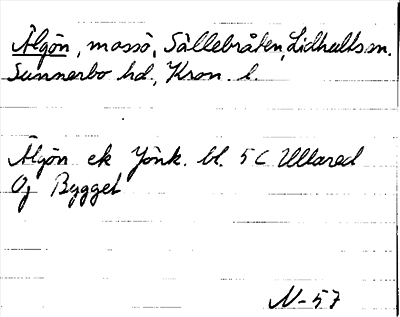 Älgön, mossö, Sällebråten, Lidhults sn.
Sunnerbo hd., Kron. l.
Älgön ek Jönk. bl. 5 C Ullared
Og Bygget
N-57